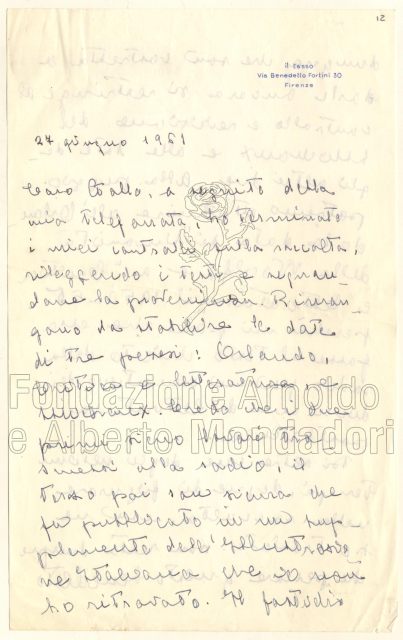 12
il Tasso
Via Benedetto Fortini 30
Firenze
24 giugno 1961
Caro Gallo, a seguito della
mia telefonata, ho terminato
i miei controlli sulla raccolta,
rileggendo i testi e segnan-
done la provenienza. Riman-
gono da stabilire le date
di tre pezzi: Orlando,
e letteratura, e
Credo che i due
primi siano stati tra-
smessi alla radio, il
terzo poi son sicura che
fu pubblicato in un sup-
plemento dell'Illustrazio-
ne Italiana che io non
ho ritrovato. Il fastidio
Fondazione Arnoldo
e Alberto Mondadori